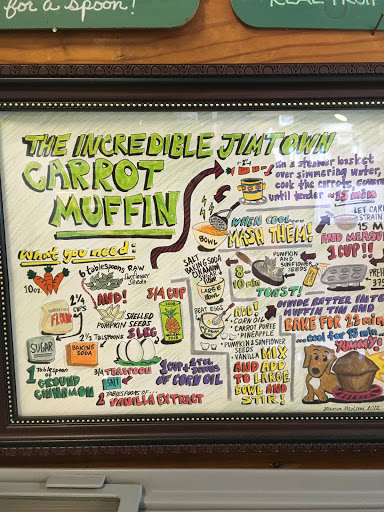 for a spoon!
REAL FRUIT
THE INCREDIBLE JIMTOWN
CARROT
MUFFIN
What you need:
10oz
6 tablespoons RAW
Sunflower
Seeds
AND!
SHELLED
PUMPKIN
SEEDS
2 1/4
CUPS
FLOUR
SUGAR
BAKING
SODA
3/4 CUP
3 LRG
3/4 TEASPOON
SALT
1 CUP + 2 TBL
OF CORN OIL
1 Tablespoon
of
GROUND
CINNAMON
2 TABLESPOONS OF
VANILLA EXTRACT
In a steamer basket
over simmering water,
cook the carrots, covered
until tender
WHEN COOL...
MASH THEM!
BOWL
LET CARROT
STRAIN
15 M
AND MEASURE
1 CUP!
SALT
BAKING SODA
CINNAMON
LARGE
BOWL
8-
10 min
PUMPKIN
AND
SUNFLOWER
SEEDS
TOAST!
BEAT EGGS
ADD:
CORN OIL
CARROT PUREE
PINEAPPLE
PUMPKIN & SUNFLOWER
SEEDS
VANILLA
MIX
AND ADD
TO LARGE
BOWL AND
STIR!
DIVIDE BATTER INTO
MUFFIN TIN AND
BAKE FOR
COOL for 15 min
YUMMY!